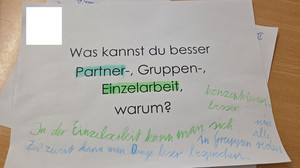 Was kannst du besser
Partner-, Gruppen-,
Einzelarbeit,
warum?
konzentrieren
besser
In der Einzelarbeit kann man sich
in Gruppen
alle
Zu zweit kann man Dinge besser besprechen.